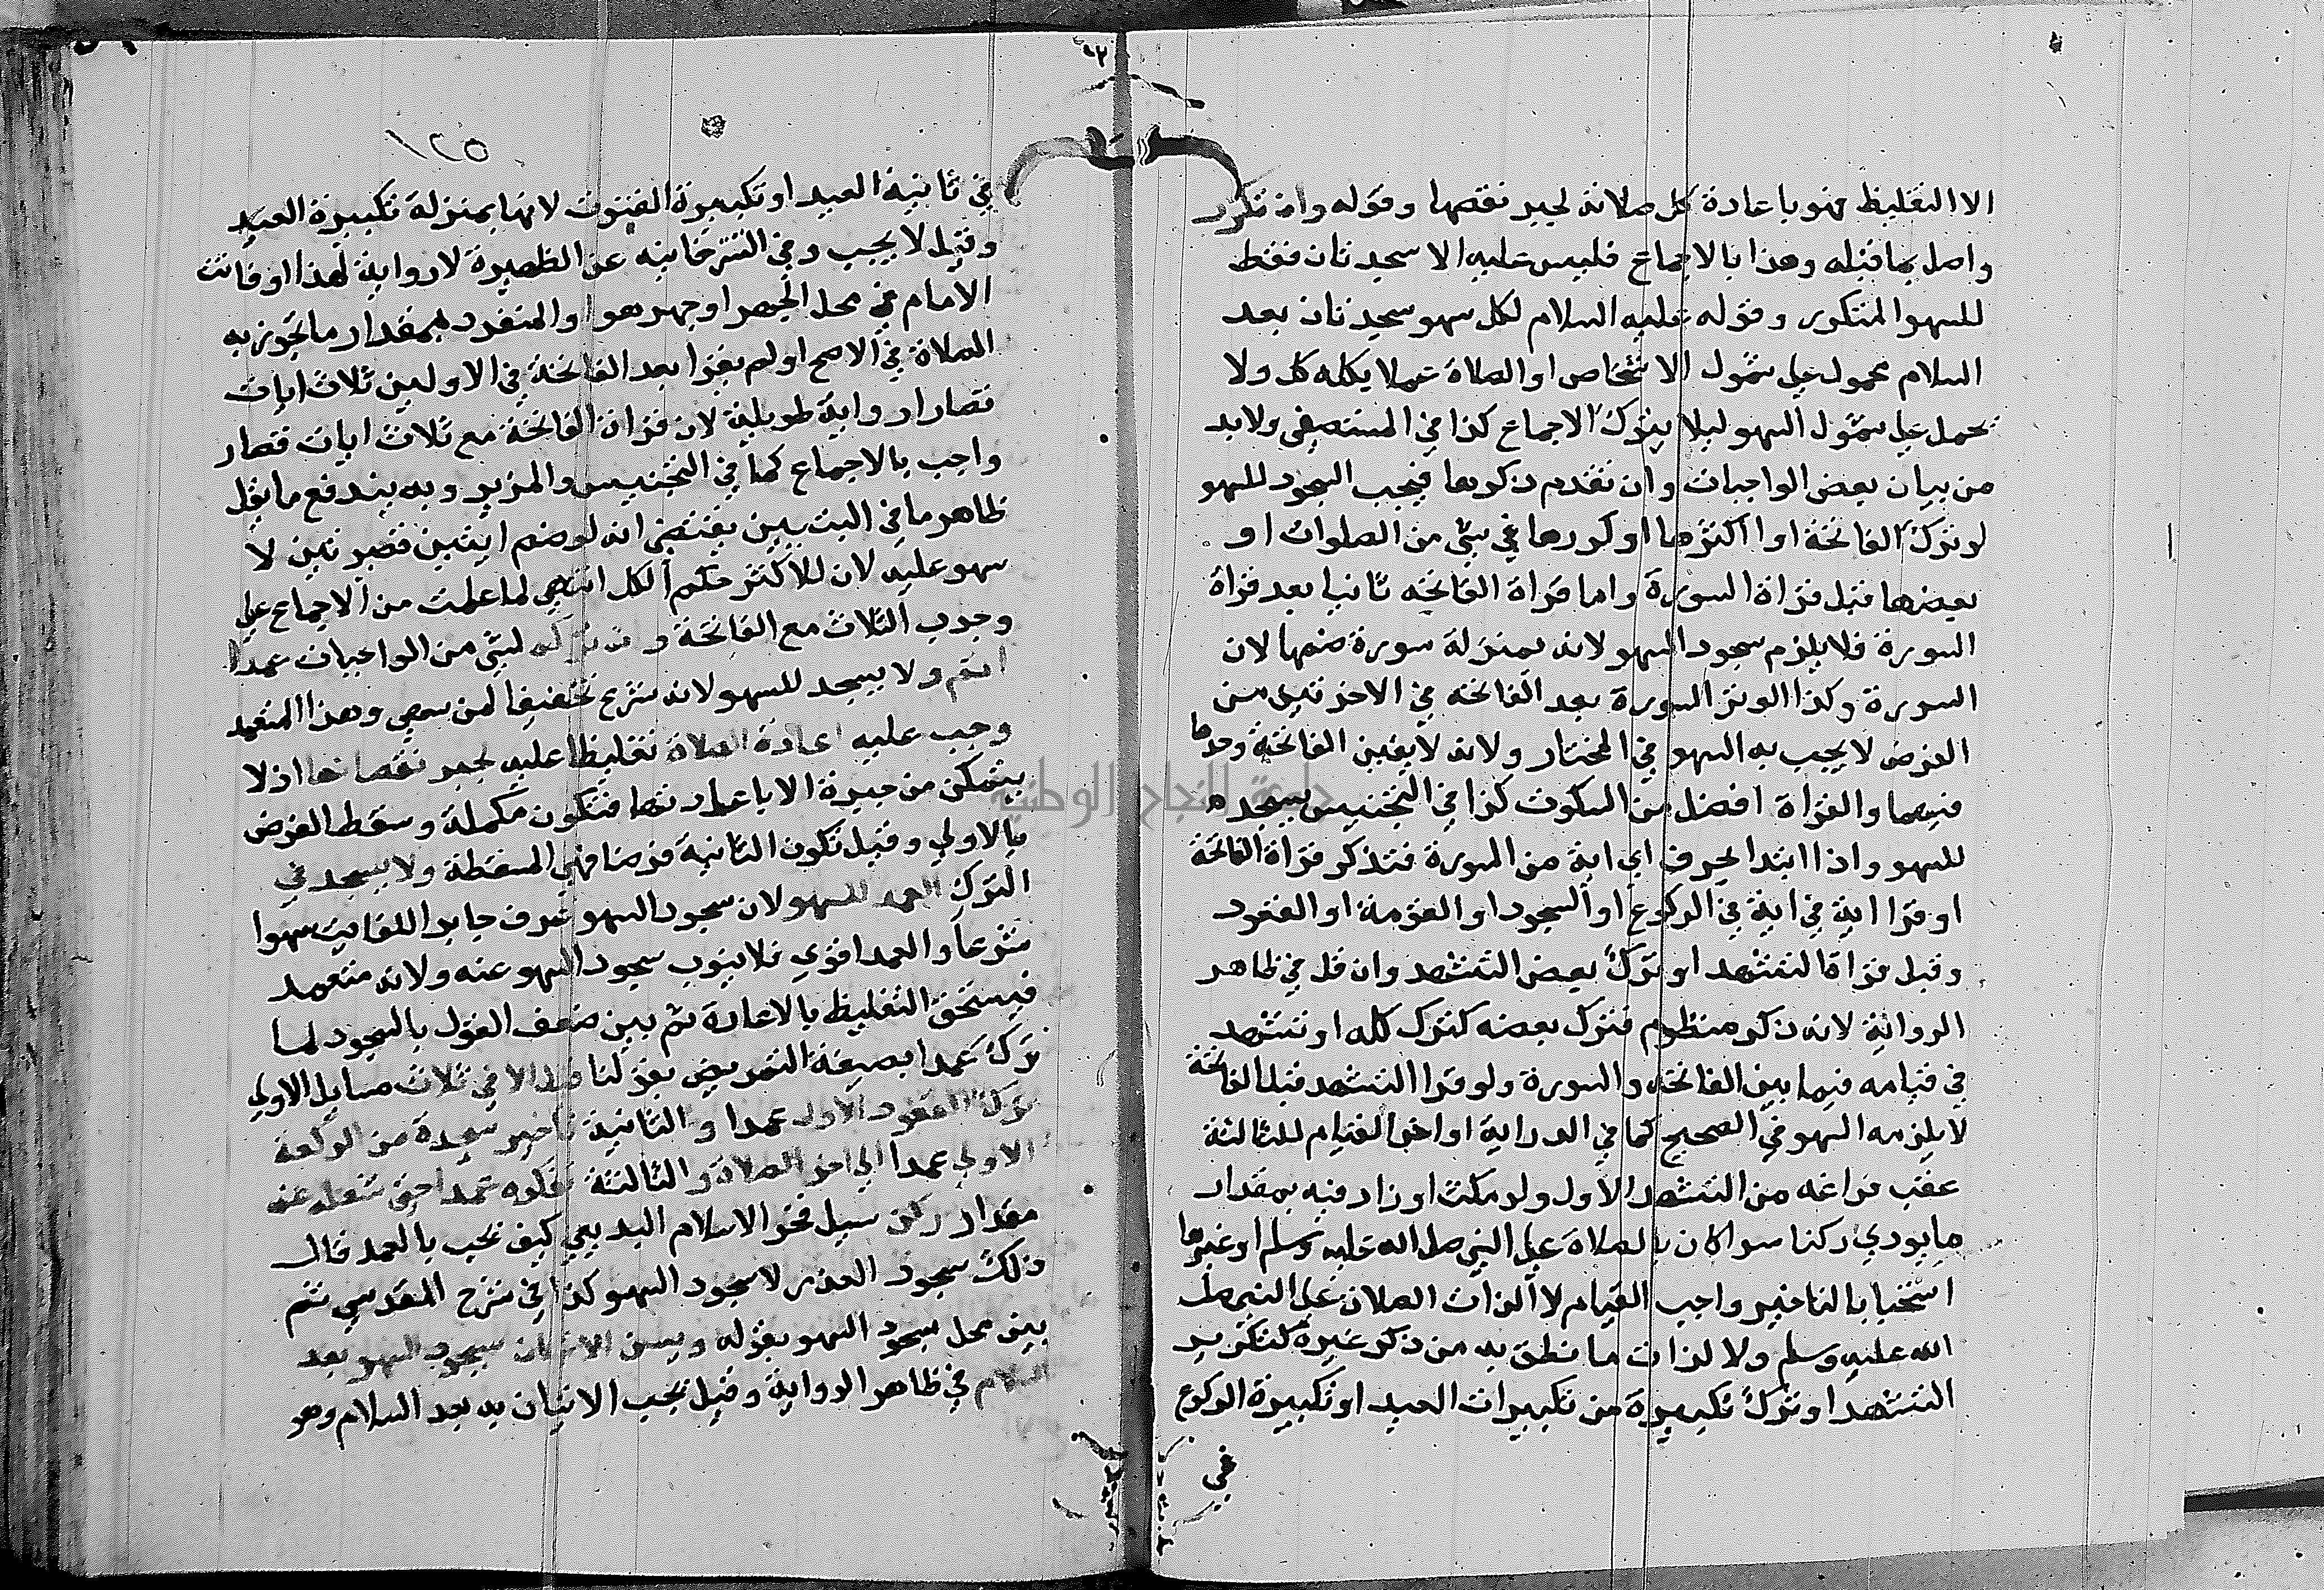 الا التغليظ فهو باعادة كل صلاته لجبر نقصها وقوله وان تكرر
واصل بما قبله وهذا بالاجماع فليس عليه الا سجدتان فقط
للسهو المتكرر وقوله عليه السلام لكل سهو سجدتان بعد
السلام محمول على شمول الاشخاص او الصلاة عملا بكله كل ولا
نحمل على شمول السهو ليلا يترك الاجماع كذا في المستصفى ولا بد
من بيان بعض الواجبات وان تقدم ذكرها فيجب السجود للسهو
لو ترك الفاتحة او اكثرها او كررها في شي من الصلوات او
بعضها قبل قراة السورة واما قراة الفاتحه ثانيا بعد قراة
السورة فلا يلزم سجود السهو لانه بمنزلة سورة ضمها لان
السورة وكذا السورة بعد الفاتحه في الاخرتين من
الفرض لا يجب به السهو في المختار ولانه لا يعين الفاتحة وحدها
فيهما والقراة افضل من السكوت كذا في التجنيس يسجد
للسهو واذا ابتدا بحرف اي اية من السورة فتذكر قراة الفاتحة
او قرا اية في اية في الركوع او السجود او القومة او القعود
وقبل قراة التشهد او ترك بعض التشهد وان قل في ظاهر
الرواية لانه ذكر منظوم فترك بعضه كترك كله او تشهد
في قيامه فيما بين الفاتحه والسورة ولو قرا التشهد قبل الفاتحة
لا يلزمه السهو في الصحيح كما في الدراية او اخر القيام للثالثة
عقب فراغه من التشهد الاول ولو مكث او زاد فيه بمقدار
ما يودي ركنا سوا كان بالصلاة على النبي صلى الله عليه وسلم او غيرها
استحبابا لتاخير واجب القيام لا لذات الصلاة على النبي صلى
الله عليه وسلم ولا لذات ما نطق به من ذكر غيره كتكرير
التشهد او ترك تكبيرة من تكبيرات العيد او تكبيرة الركوع
في
١٢٥
في ثانية العيد او تكبيرة القنوت لانها بمنزلة تكبيرة العيد
وقيل لا يجب وفي التترخانيه عن الظهيرة لا رواية لهذا او فاتت
الامام في محل الجهر او جهر هو او المنفرد بمقدار ما تجوز به
الصلاة في الاصح او لم يقرا بعد الفاتحة في الاوليين ثلاث ايات
قصار او اية طويلة لان قراة الفاتحة مع ثلاث ايات قصار
واجب بالاجماع كما في التجنيس والمزيد وبه يندفع ما يقل
ظاهر ما في التبيين يقتضي انه لو ضم ايتين قصيرتين لا
سهو عليه لان للاكثر حكم الكل انتهى لما علمت من الاجماع على
وجوب الثلاث مع الفاتحة وان تركه لشي من الواجبات عمدا
اثم ولا يسجد للسهو لانه شرع تخفيفا لمن سهى وهذا المتعمد
وجب عليه اعادة الصلاة تغليظا عليه لجبر نقصانها اذ لا
يتمكن من جبره الا باعادتها فتكون مكملة وسقط الفرض
بالاولى وقيل تكون الثانية فرضا فهي المسقطة ولا يسجد في
الترك العمد للسهو لان سجود السهو عرف جابرا للفايت سهوا
شرعا والعمد اقوي فلا ينوب سجود السهو عنه ولانه متعمد
فيستحق التغليظ بالاعادة ثم بين ضعف القول بالسجود لما
ترك عمدا بصيغة التمريض بقولنا قيل الا في ثلاث مسايل الاولى
ترك القعود الاول عمدا والثانية تاخير سجدة من الركعة
الاولى عمدا الى اخر الصلاة والثالثة تفكره عمدا حتى شغله عن
مقدار ركن سيل فخر الاسلام البديعي كيف يجب بالعمد قال
ذلك سجود العذر لا سجود السهو كذا في شرح المقدسي ثم
بين محل سجود السهو بقوله ويسن الاتيان سجود السهو بعد
السلام في ظاهر الرواية وقيل يجب الاتيان به بعد السلام وهو
جامعة النجاح الوطنية